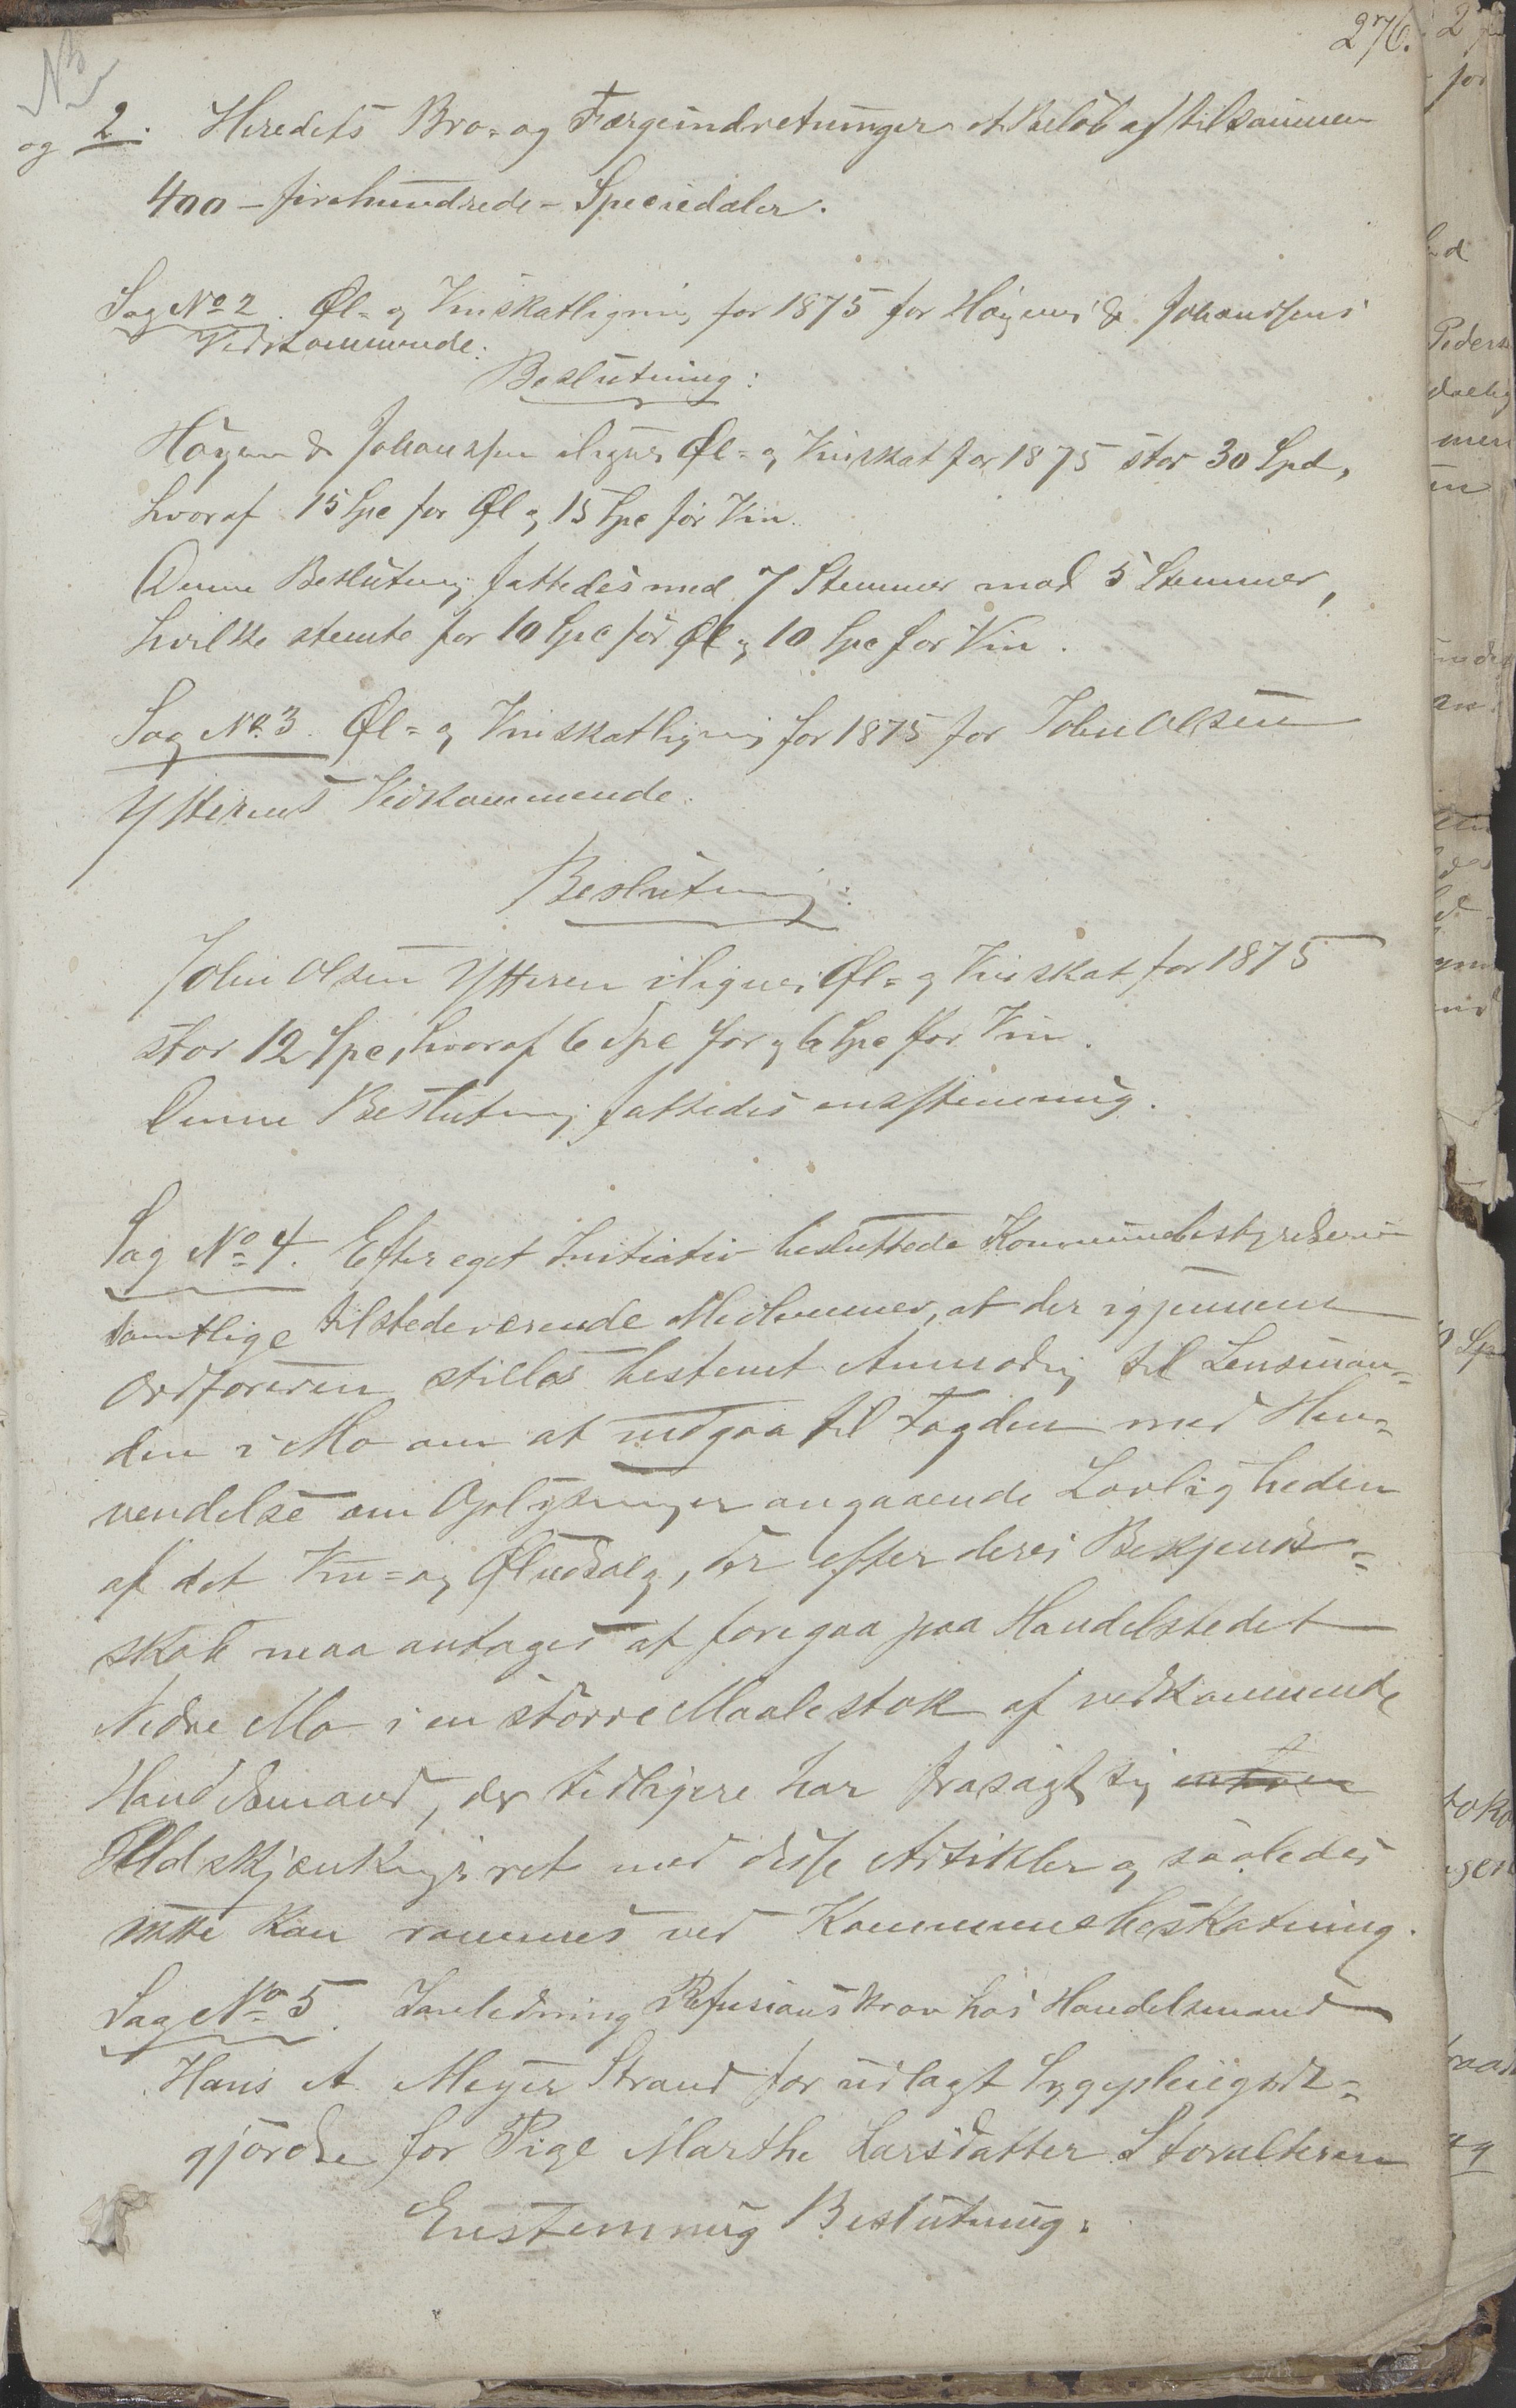 276.
NB
og 2. Heredets Bro- og Færgeindretninger et Beløb af tilsammen
400 - firehundrede - Speciedaler.
Sag No 2. Øl- og Vinskatligning for 1875 for Høyens & Johanssens
Vedkommende.
Beslutning:
Høyen & Johanssen ilignes Øl- og Vinskat for 1875 stor 30 Spd,
hvoraf 15 Spe for Øl og 15 Spe for Vin.
Denne Beslutning fattedes med 7 Stemmer mod 5 Stemmer,
hvilke stemte for 10 Spe for Øl og 10 Spe for Vin.
Sag No 3. Øl- og Vinskatligning for 1875 for John Olsen
Ytterens Vedkommende.
Beslutning:
John Olsen Ytteren ilignes Øl- og Vinskat for 1875
stor 12 Spe, hvoraf 6 Spe for og 6 Spe for Vin.
Denne Beslutning fattedes enstemmig.
Sag No 4. Efter eget Initiativ besluttede Kommunebestyrelsens
samtlige tilstedeværende Medlemmer, at der igjennem
Ordføreren stilles bestemt Anmodng til Lensman-
den i Mo om at indgaa til Fogden med Hen-
vendelse om Oplysninger angaaende Lovligheden
af det Vin- og Øludsalg, der efter deres Bekjendt-
skab maa antages at foregaa paa Handelstedet
Nedre Mo i en større Maalestok af vedkommende
Handelsmand, der tidligere har frasagt sig
Udskjænkngsret med disse Artikler og saaledes
ikke kan rammes ved Kommunebeskatning.
Sag No 5. Indledning Refusionskrav hos Handelsmand
Hans A. Meyer Strand for udlagt Sygepleiegodt-
gjørelse for Pige Marthe Larsdatter Storalteren
Enstemmig Beslutning.